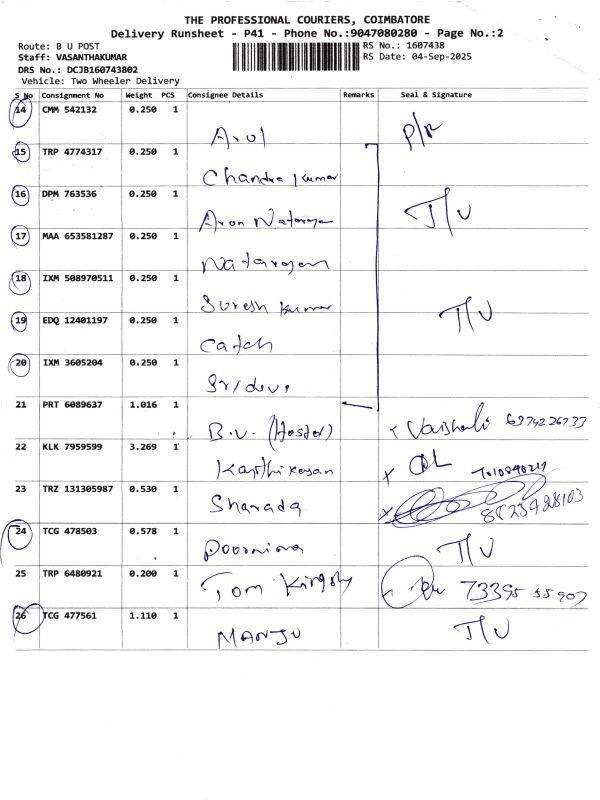 THE PROFESSIONAL COURIERS, COIMBATORE
Delivery Runsheet - P41 - Phone No.:9047080280 - Page No.:2
Route: B U POST
RS No.: 1607438
Staff: VASANTHAKUMAR
RS Date: 04-Sep-2025
DRS No.: DCJB160743802
Vehicle: Two Wheeler Delivery
S No Consignment No Weight PCS Consignee Details Remarks Seal & Signature
14 CMM 542132 0.250 1
Arul P/R
15 TRP 4774317 0.250 1
Chandra Kumar
16 DPM 763536 0.250 1
Aron Natarajan T/U
17 MAA 653581287 0.250 1
Natarajan
18 IXM 508970511 0.250 1
Suresh Kumar T/U
19 EDQ 12401197 0.250 1
Catch
20 IXM 3605204 0.250 1
Sridevi
21 PRT 6089637 1.016 1
B.U. (Hostel) x Vaishali 6374226733
22 KLK 7959599 3.269 1
Karthikeyan x
23 TRZ 131305987 0.530 1
Sharada x
24 TCG 478503 0.578 1
Poornima T/U
25 TRP 6480921 0.200 1
Tom Kingsly 73395 55907
26 TCG 477561 1.110 1
MANJU T/U